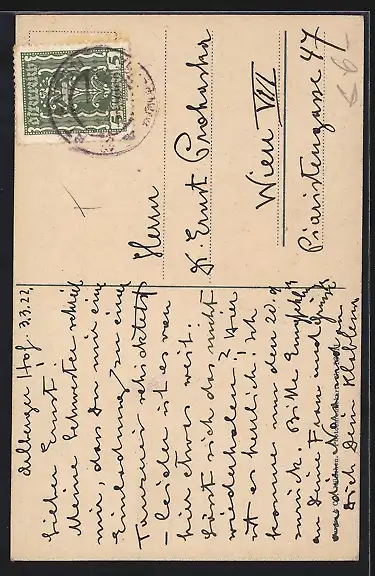 Herrn
Dr. Ernst Prohaska
Wien VIII
Piaristengasse 47
Hof 3.3.22
Lieber Ernst!
Meine Schwester schrieb
mir, dass Du mir eine
Einladung zu einem
Tanzreis schicktest
- leider ist es von
hier etwas weit.
Lässt sich das nicht
wiederholen? Hier
ist es herrlich! Ich
komme nur den 20. d
zurück. Bitte Empfehle
an Deine Frau und grüßt
Dich Dein
ÖSTERREICH
5 5